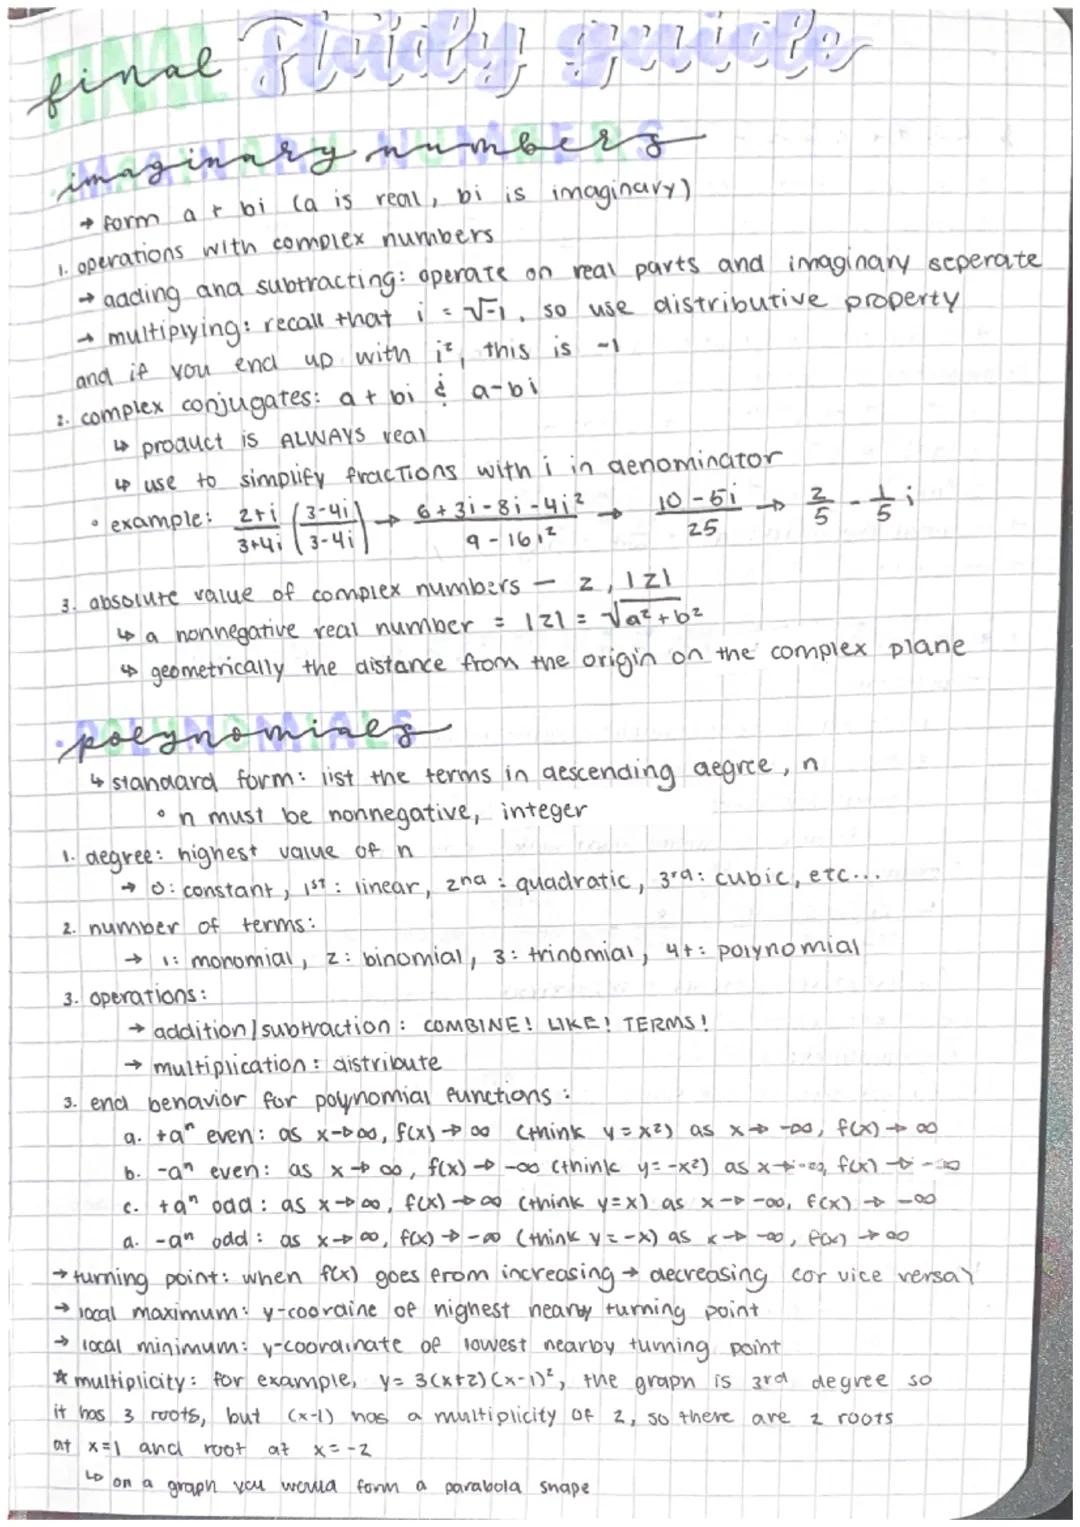 final Study guide
imaginary numbers
→ form a + bi (a is real, bi is imaginary)
1. operations with complex numbers
→ adding and subtracting: operate on real parts and imaginary seperate
→ multiplying: recall that i = √-1, so use distributive property
and if you end up with i², this is -1
2. complex conjugates: a + bi & a-bi
↳ product is ALWAYS real
↳ use to simplify fractions with i in denominator
• example: 2+i/3+4i (3-4i/3-4i) → 6+3i-8i-4i²/9-16i² → 10-5i/25 → 2/5 - 1/5 i
3. absolute value of complex numbers — z, |z|
↳ a nonnegative real number = |z| = √a²+b²
↳ geometrically the distance from the origin on the complex plane
polynomials
↳ standard form: list the terms in descending degree, n
• n must be nonnegative, integer
1. degree: highest value of n
→ 0: constant, 1st: linear, 2nd: quadratic, 3rd: cubic, etc...
2. number of terms:
→ 1: monomial, 2: binomial, 3: trinomial, 4+: polynomial
3. operations:
→ addition/subtraction: COMBINE! LIKE! TERMS!
→ multiplication: distribute
3. end behavior for polynomial functions:
a. +aⁿ even: as x→∞, f(x)→∞ (think y=x²) as x→-∞, f(x)→∞
b. -aⁿ even: as x→∞, f(x)→-∞ (think y=-x²) as x→-∞, f(x)→-∞
c. +aⁿ odd: as x→∞, f(x)→∞ (think y=x) as x→-∞, f(x)→-∞
d. -aⁿ odd: as x→∞, f(x)→-∞ (think y=-x) as x→-∞, f(x)→∞
→ turning point: when f(x) goes from increasing → decreasing (or vice versa)
→ local maximum: y-coordine of highest nearby turning point
→ local minimum: y-coordinate of lowest nearby turning point
* multiplicity: for example, y= 3(x+2)(x-1)², the graph is 3rd degree so
it has 3 roots, but (x-1) has a multiplicity of 2, so there are 2 roots
at x=1 and root at x=-2
↳ on a graph you would form a parabola shape